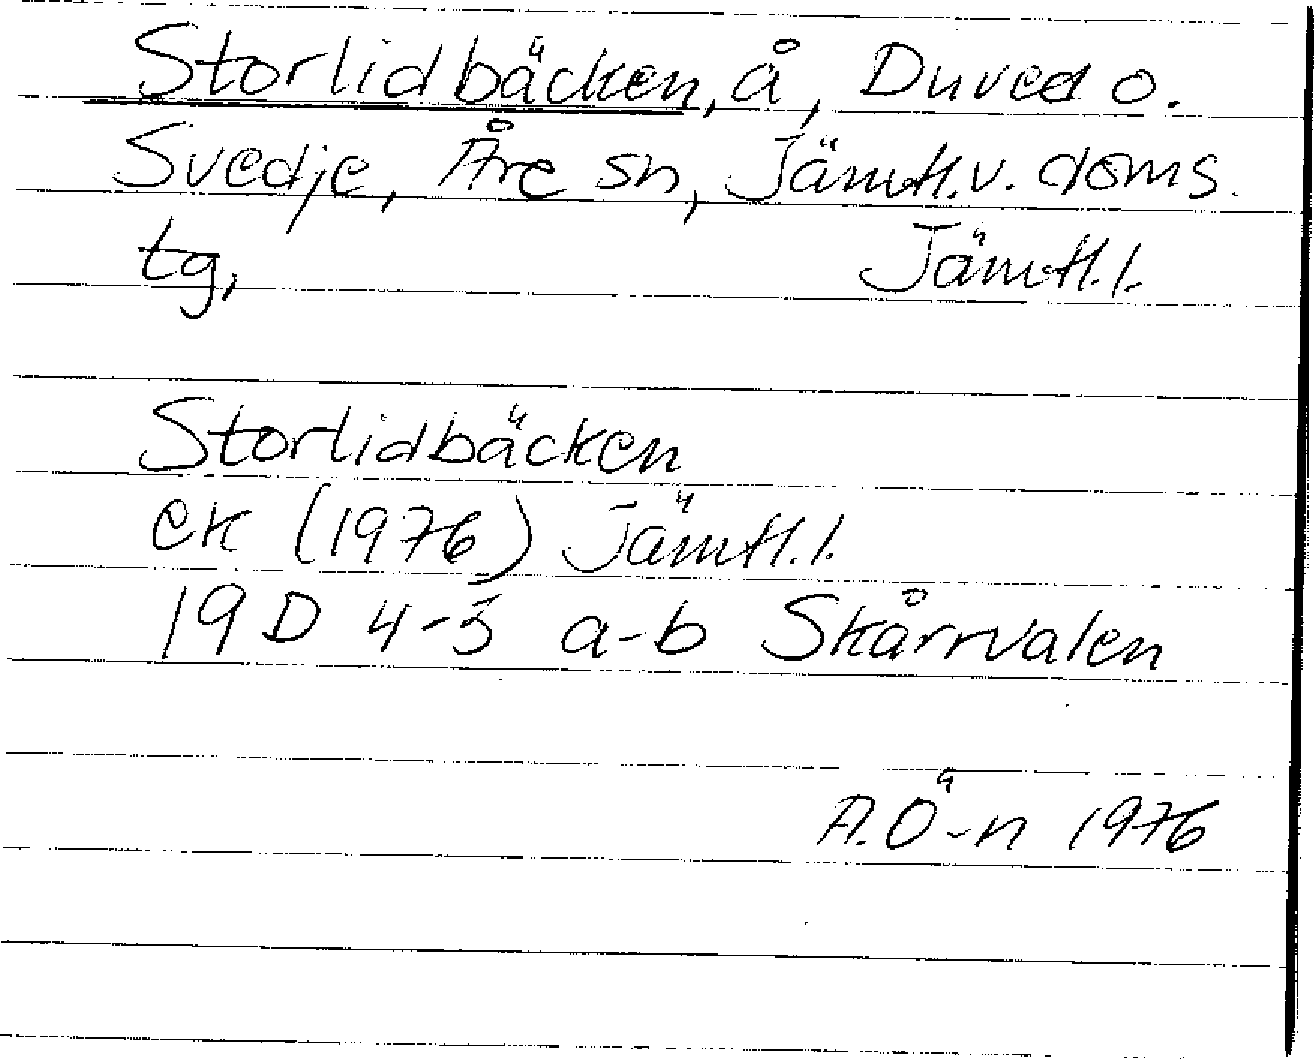 Storlidbäcken, å, Duved o.
Svedje, Åre sn, Jämtl.v. doms.
tg, Jämtl.l.
Storlidbäcken
ek (1976) Jämtl.l.
19 D 4-5 a-b Skårrvalen
A.Ö-n 1976